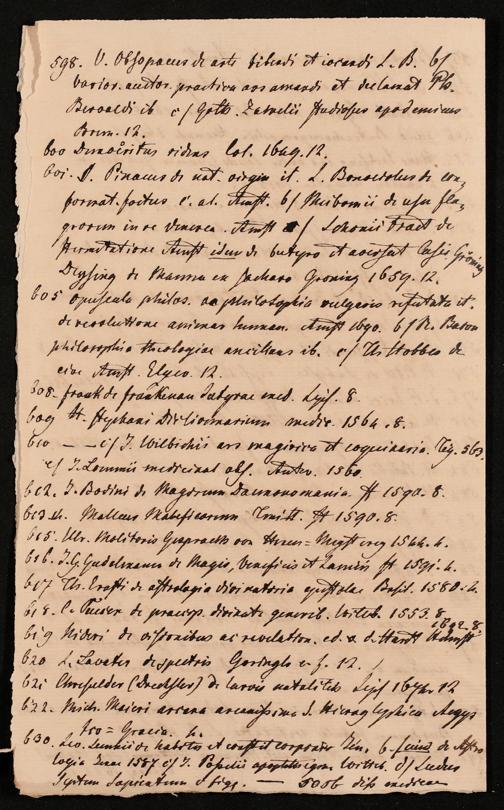 598. V. Obsopaeus de arte bibendi et iocandi L. B. b/
varior. auctor. practica ars amandi et declamat Ph.
Beroaldi ib c/ Goth. studiosus apodemicus
Brem. 12.
600 Democritus ridens Col. 1649. 12.
601. S. Pinaeus de nat. virgin it. L. Bonaciolus de con-
format. foetus e. al. Amst. b/ Meibomii de usu fla-
grorum in re venerea. Amst c/ Schonii tract de
Amst idem de butyro et Casei Groning
de Manna ex Sacharo Groning 1659. 12.
605 opuscula philos. philosophia vulgaris refutata it.
de revolutione animar human. Amst 1690. b/ R. Bacon
philosophia theologiae ancillans ib. c/ Th Hobbes de
cive Amst. Elzev. 12.
608. frank de frankenau Satyrae med. Lips. 8.
609 H. Stephani Dictionarium medic 1564. 8.
610 — — c/ J. Wilbichii ars magirica et coquinaria. Tig. 563.
c/ J. Lommii medicinal obs. Antw. 1560.
612. J. Bodini de Magorum Daemonomania. ff 1590. 8.
613. Malleus Maleficarum ff 1590. 8.
615. Ulr. Molitoris Gespraech von Hexen 1544. 4.
616. J. G. Godelmann de Magis, veneficis et Lamiis ff 1591. 4.
617 Th. Erasti de astrologia divinatoria epistolae Basil. 1580. 4.
618. C. Peucer de praecip. divinat generib. Witeb. 1553. 8
619 Nideri de visionibus ac revelation. ed. v. d. Hardt Helmst. 1692. 8.
620 L. Lavater de spectris Gorinch e. f. 12.
621 Ehrefelder (Drechsler) de larvis natalitiis Lips 1674. 12
622. Mich. Maieri arcana arcanissima s. Hieroglyphica Aegyp
tio = Graeca. 4.
630. Leo. Lemnii de habitu et constit corporis Jen. b. de Astro
logia Jenae 1587 c/ J. apophthegm. Witteb. d/ Ludus
Septem Sapientum s figg. — 5006 diss medicae